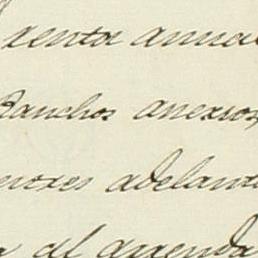 renta anual
Ranchos anexos,
enores adelant
al arrenda